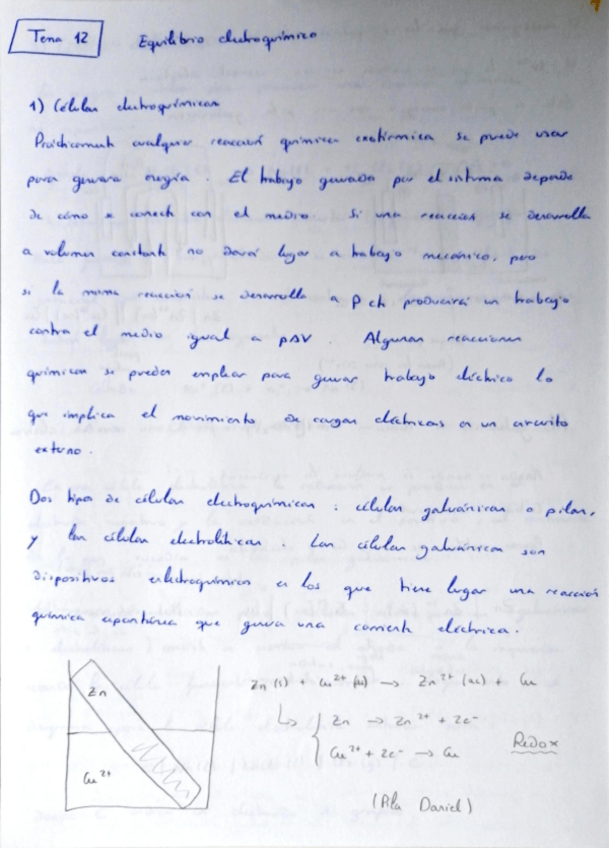 Tema 12 Equilibrio electroquímico
1) Células electroquímicas
Prácticamente cualquier reacción química exotérmica se puede usar
para generar energía. El trabajo generado por el sistema depende
de cómo se conecte con el medio Si una reacción se desarrolla
a volumen constante no dará lugar a trabajo mecánico, pero
si la misma reacción se desarrolla a p ch producirá un trabajo
contra el medio igual a pΔV. Algunas reacciones
químicas se pueden emplear para generar trabajo eléctrico lo
que implica el movimiento de cargas eléctricas en un circuito
externo.
Dos tipos de células electroquímicas: células galvánicas o pilas,
y las células electrolíticas. Las células galvánicas son
dispositivos electroquímicos en los que tiene lugar una reacción
química espontánea que genera una corriente eléctrica.
Zn
Cu²⁺
Zn (s) + Cu²⁺ (ac) → Zn²⁺ (ac) + Cu
Zn → Zn²⁺ + 2e⁻
Cu²⁺ + 2e⁻ → Cu
Redox
(Pila Daniel)